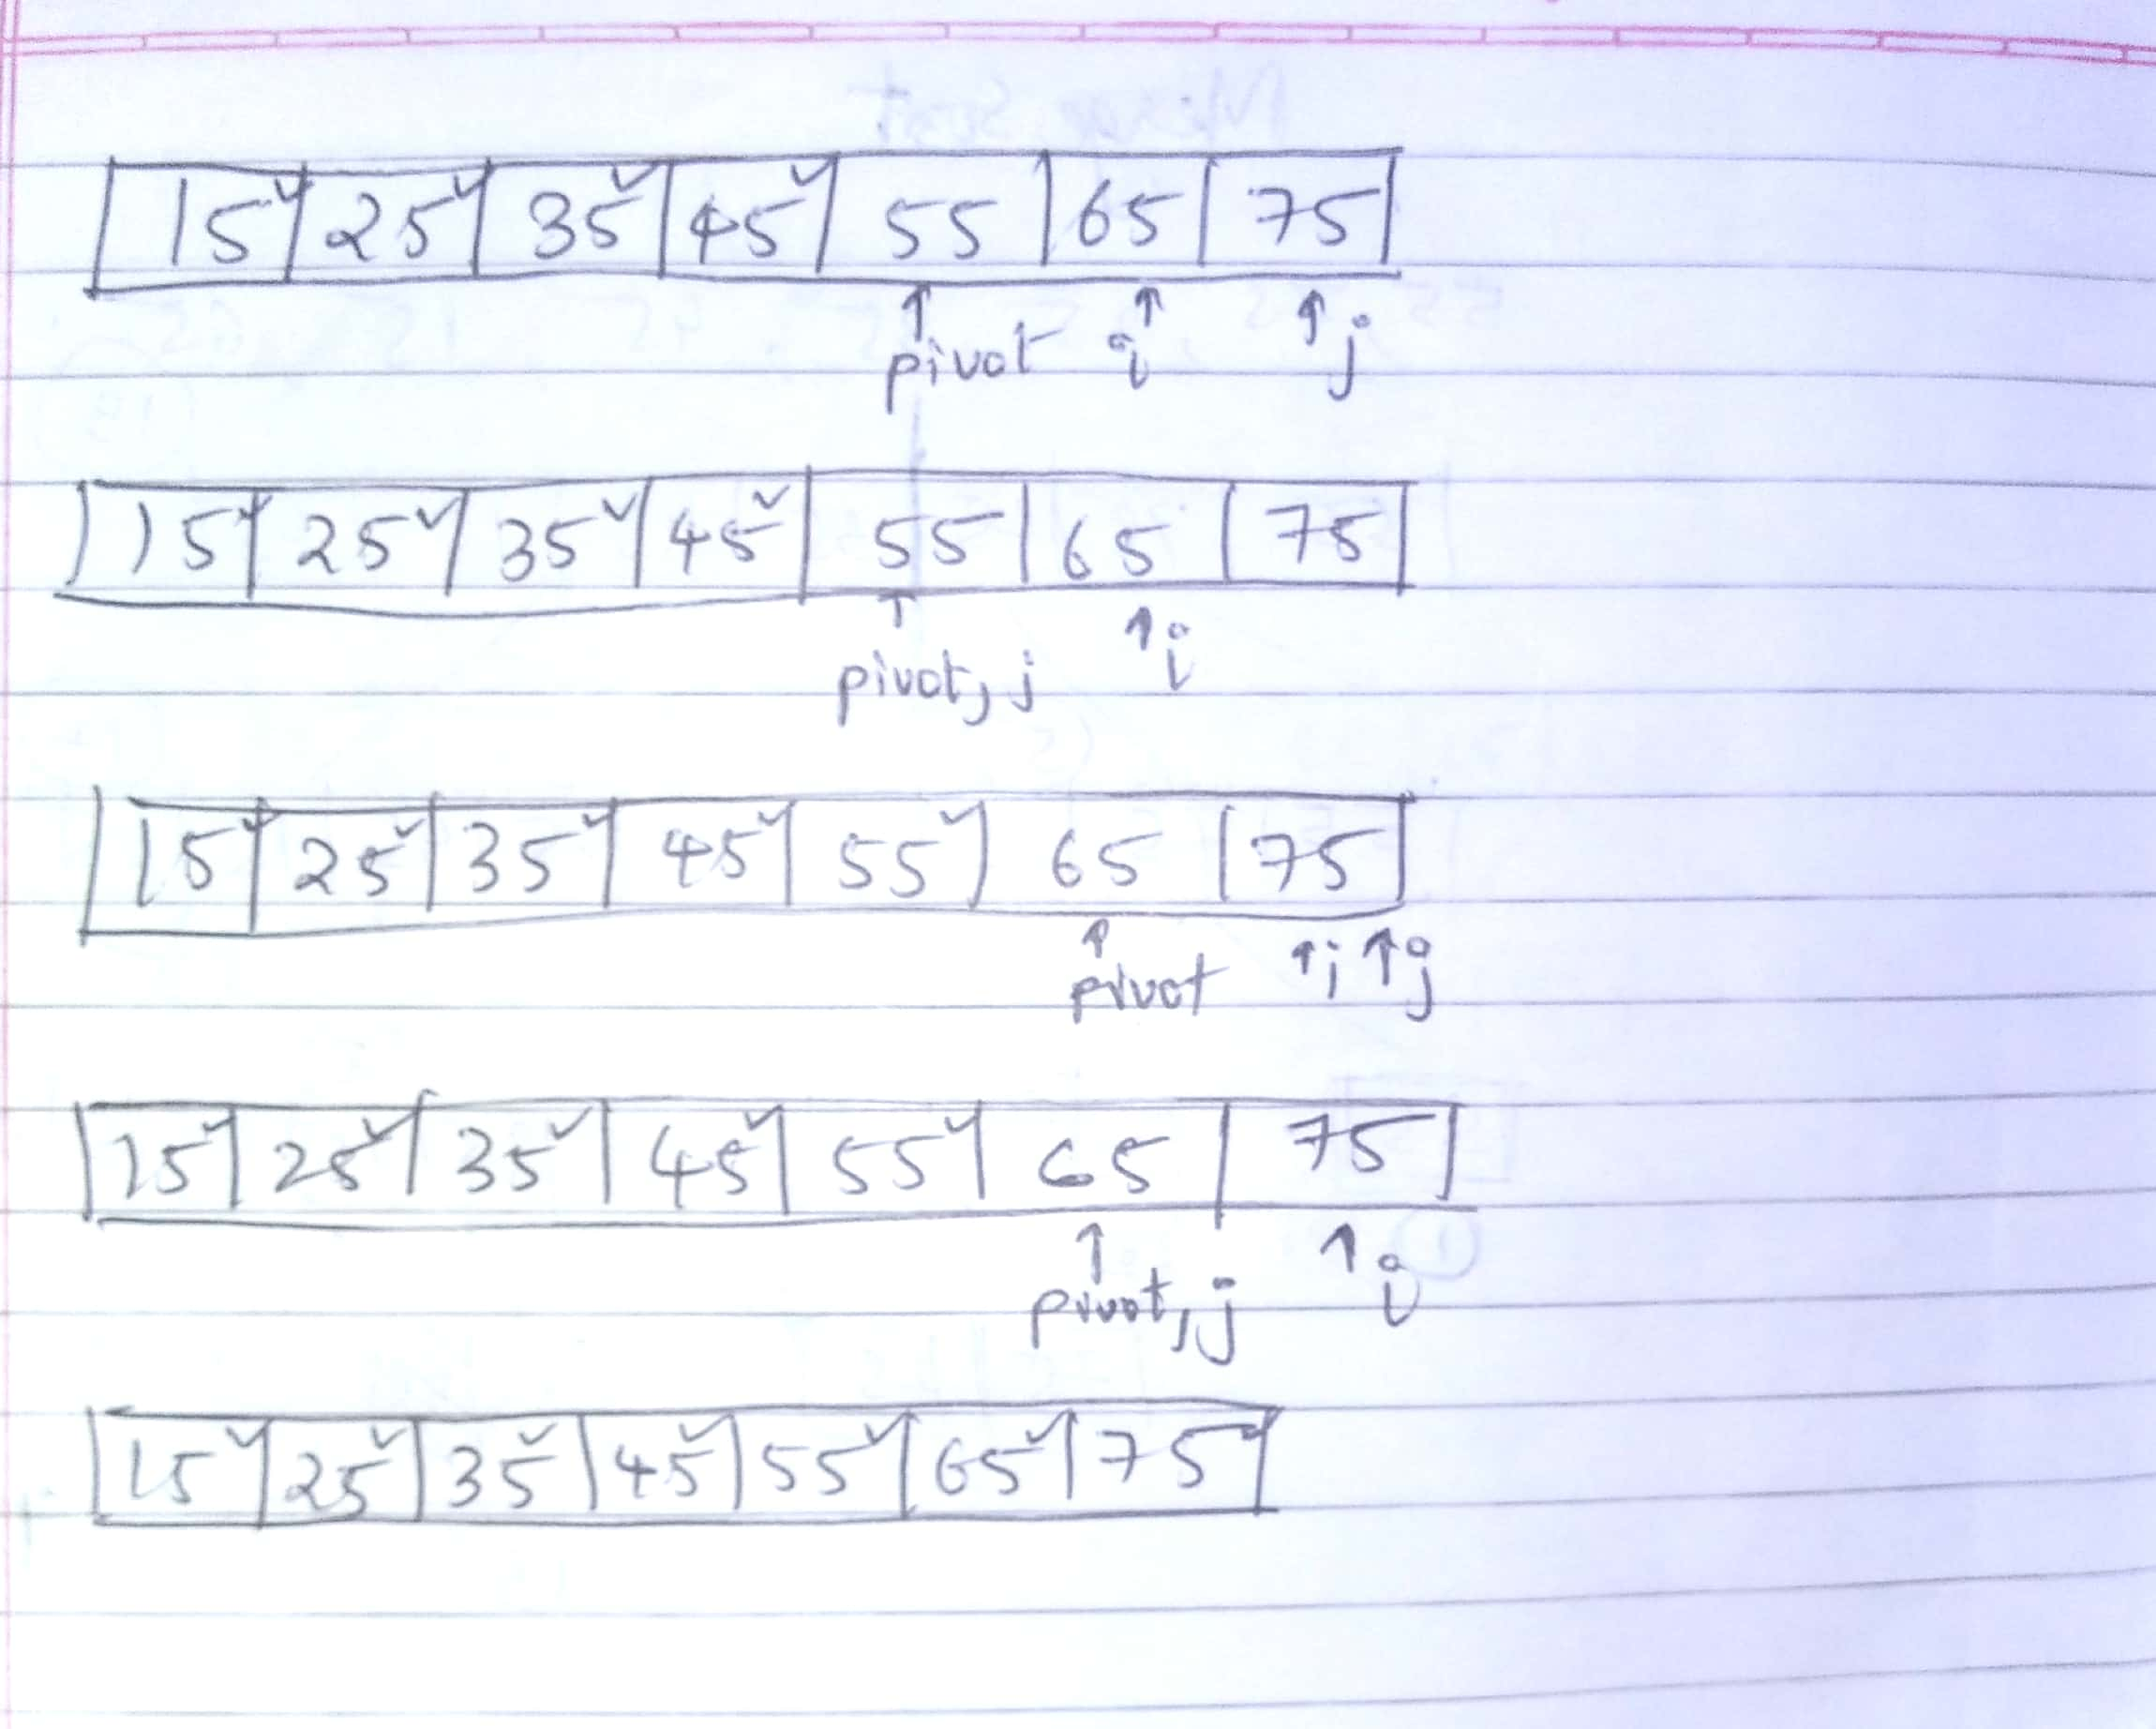 15 25 35 45 55 65 75
pivot i j
15 25 35 45 55 65 75
pivot, j i
15 25 35 45 55 65 75
pivot i j
15 25 35 45 55 65 75
pivot, j i
15 25 35 45 55 65 75